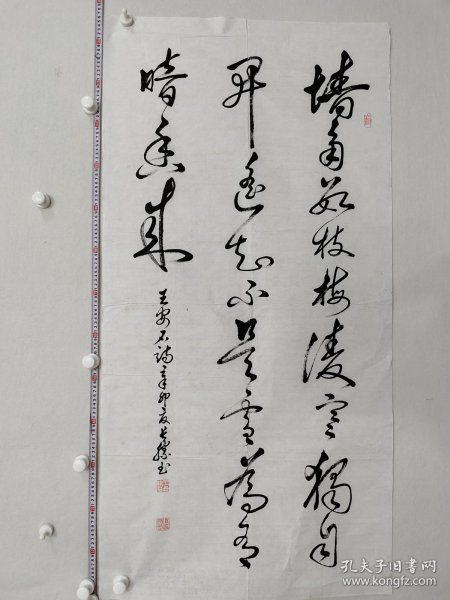 墙角数枝梅凌寒独自
开遥知不是雪为有
暗香来
王安石诗辛卯夏长胜书
孔夫子旧书网
www.kongfz.com